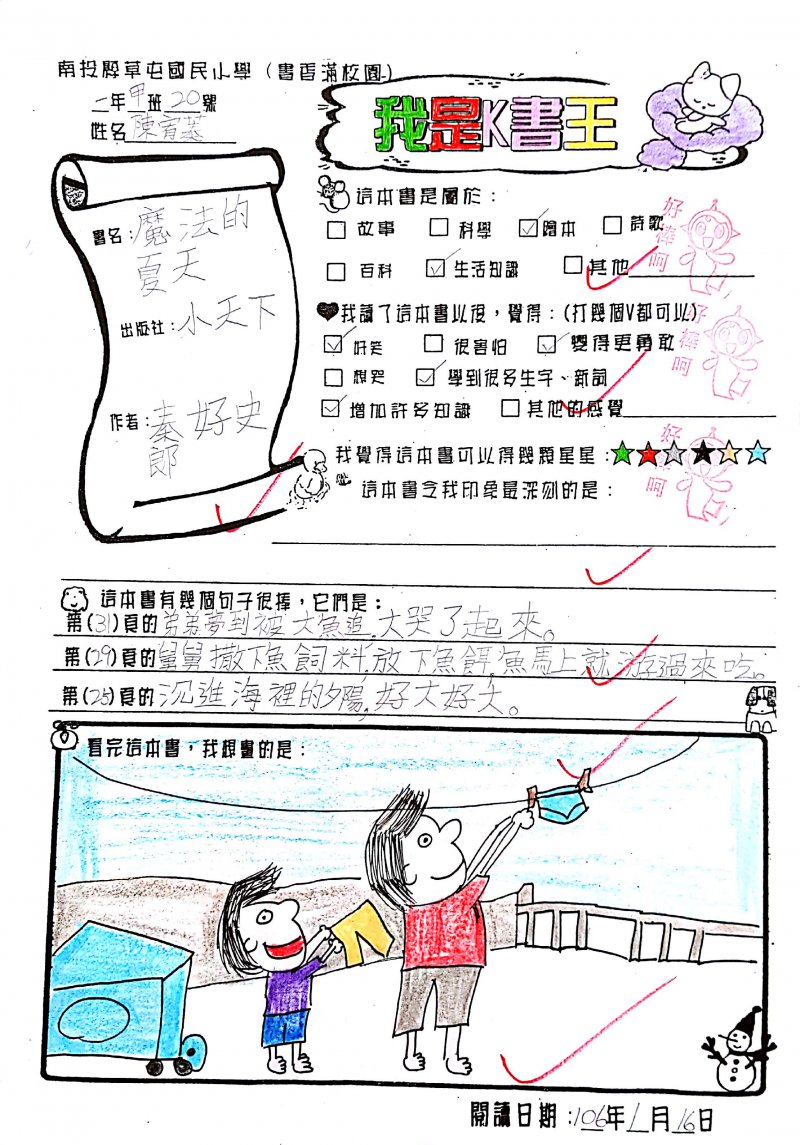 南投縣草屯國民小學(書香滿校園)
一年甲班20號
姓名陳宥蓁
我是K書王
書名:魔法的
夏天
出版社:小天下
作者:秦好史
郎
這本書是屬於:
□故事 □科學 ☑繪本 □詩歌
□百科 ☑生活知識 □其他
我讀了這本書以後,覺得:(打幾個V都可以)
☑好笑 □很害怕 ☑變得更勇敢
□想哭 ☑學到很多生字、新詞
☑增加許多知識 □其他的感覺
我覺得這本書可以得幾顆星星:
這本書令我印象最深刻的是:
好棒呵
好棒呵
好 呵
這本書有幾個句子很棒,它們是:
第(31)頁的弟弟夢到被大魚追,大哭了起來。
第(29)頁的舅舅撒下魚飼料,放下魚餌,魚馬上就游過來吃。
第(25)頁的沉進海裡的夕陽,好大好大。
看完這本書,我想畫的是:
閱讀日期:106年1月16日